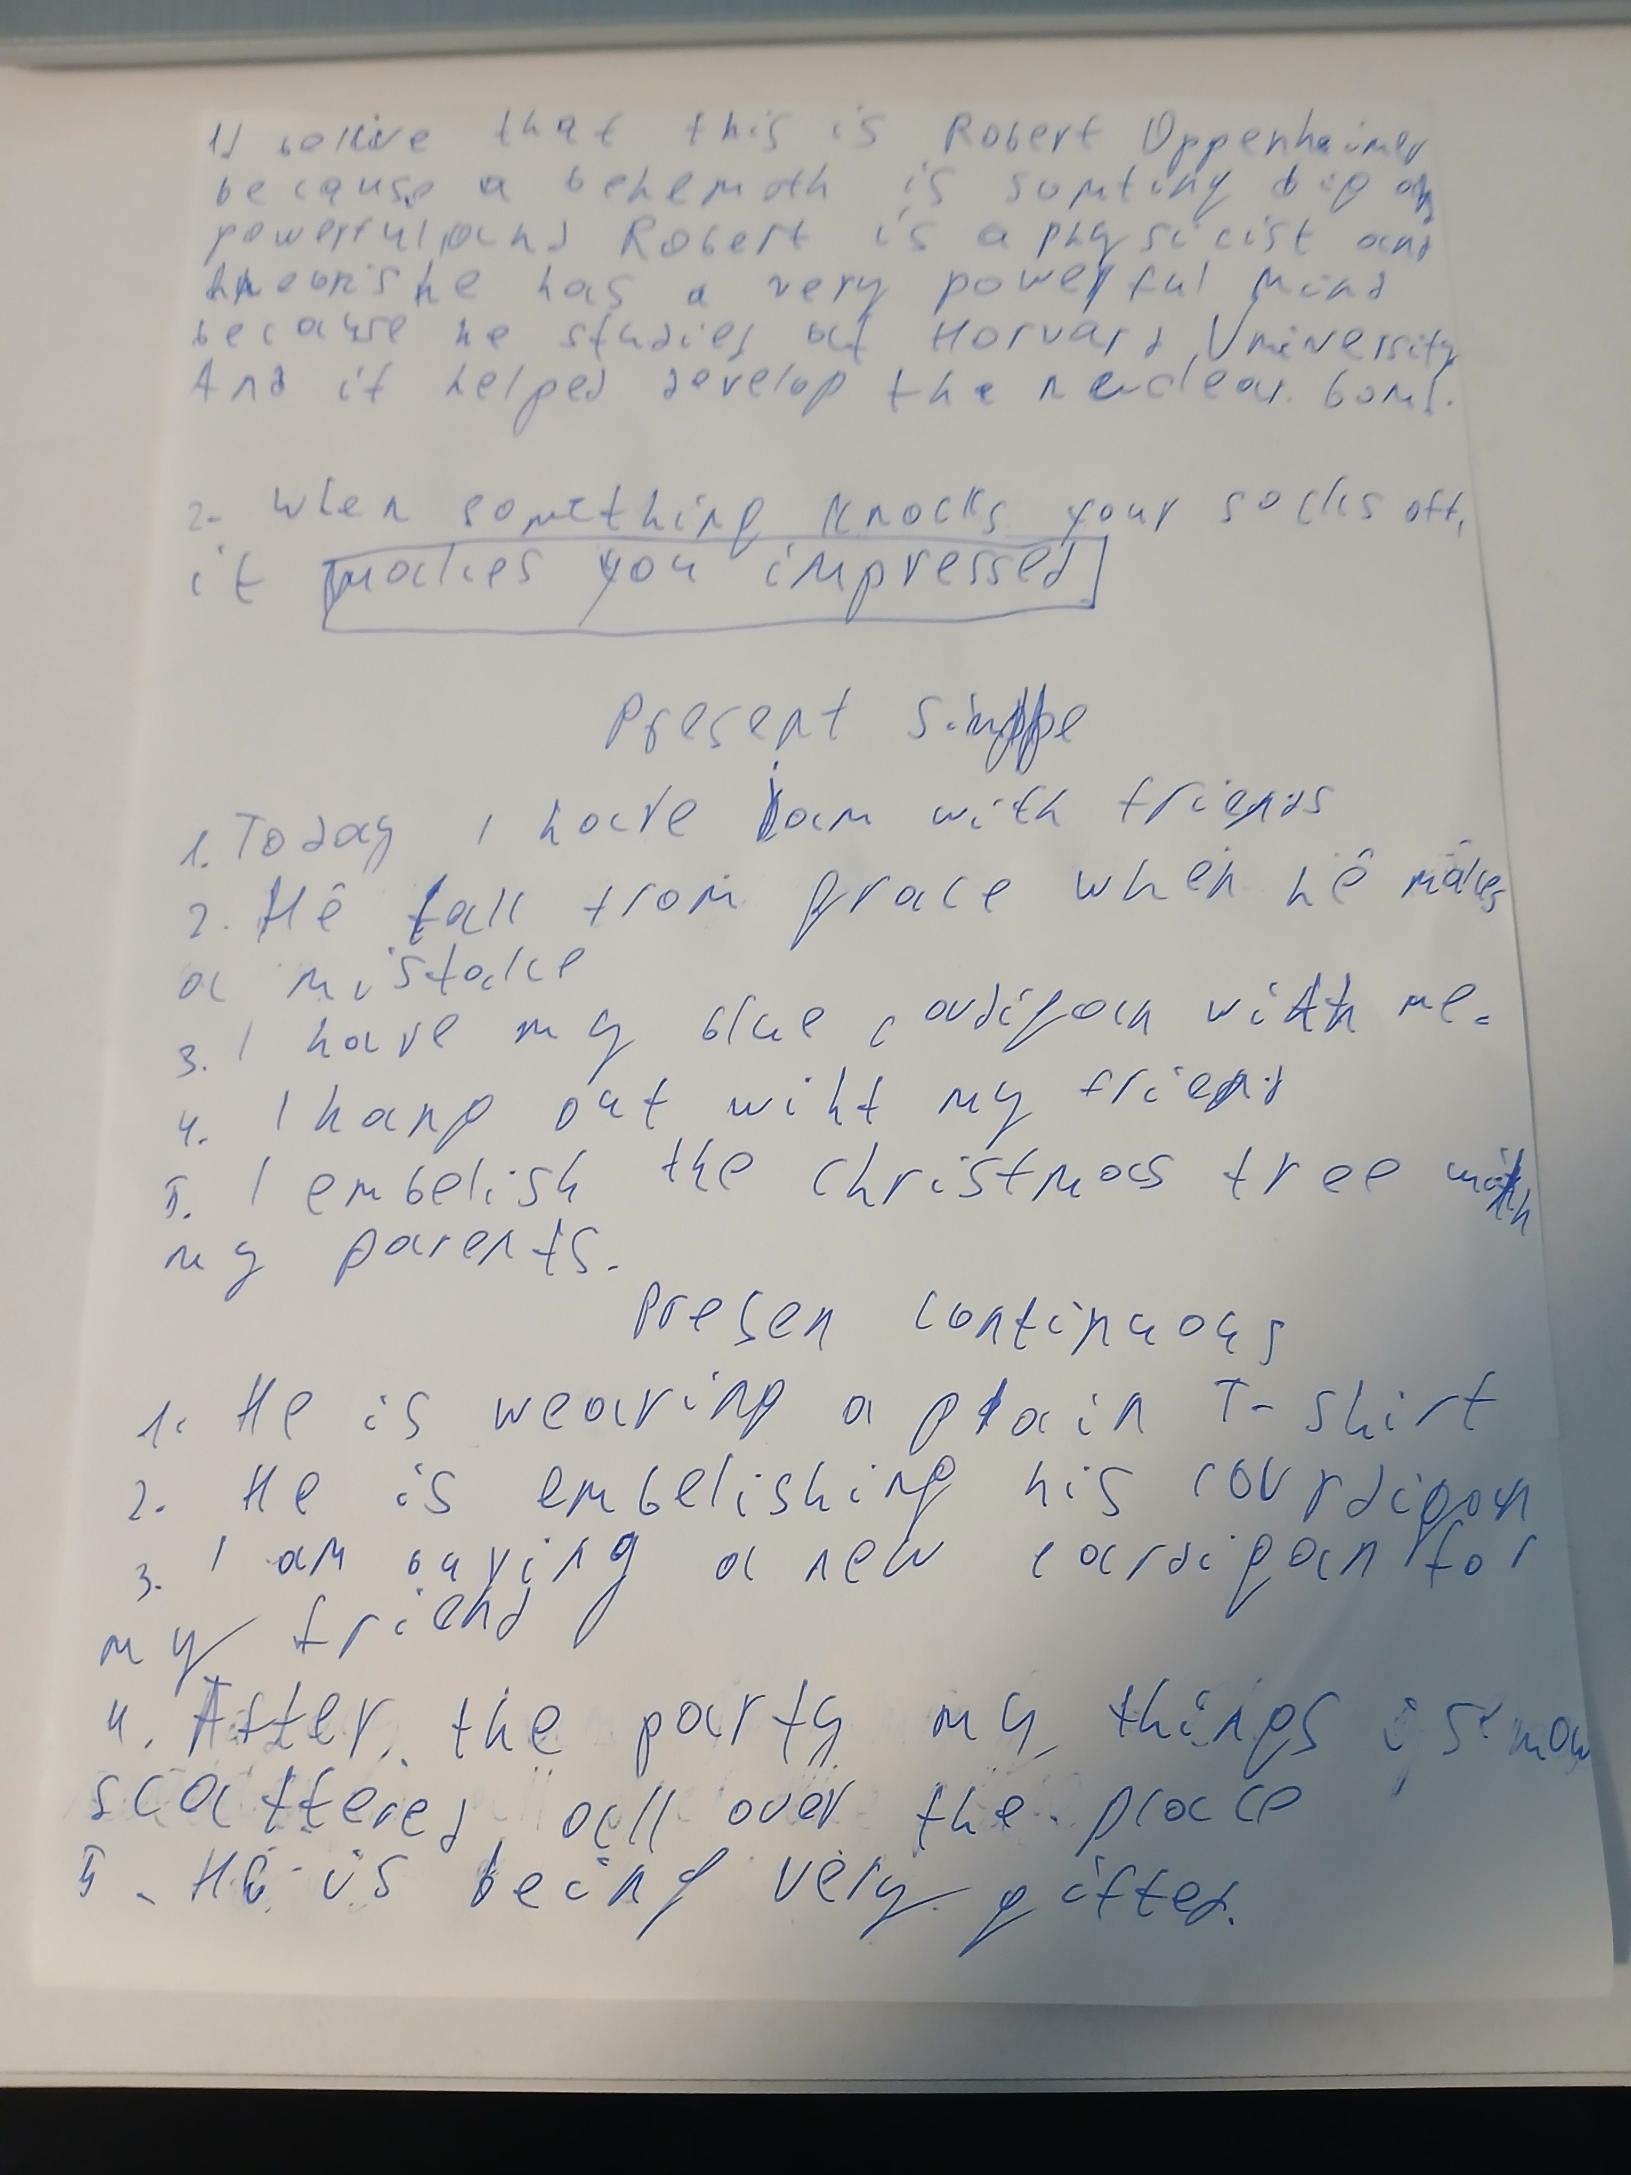 1) belive that this is Robert Oppenhaimer
because a behemoth is sumting big or
powerful, and Robert is a physicist and
he has a very powerful mind
because he studies at Horvard University
And it helped develop the neuclear bomb.
2. When something knocks your socks off,
it makes you impressed
Present Simple
1. Today I have jam with friends
2. He fall from grace when he makes
a mistake
3. I have my blue cardigan with me.
4. I hang out wiht my friend
5. I embelish the christmas tree with
my parents.
Presen continuous
1. He is wearing a plain T-shirt
2. He is embelishing his cardigan
3. I am buying a new cardigan for
my friend
4. After the party my things is now
scattered all over the place
5. He is being very gifted.